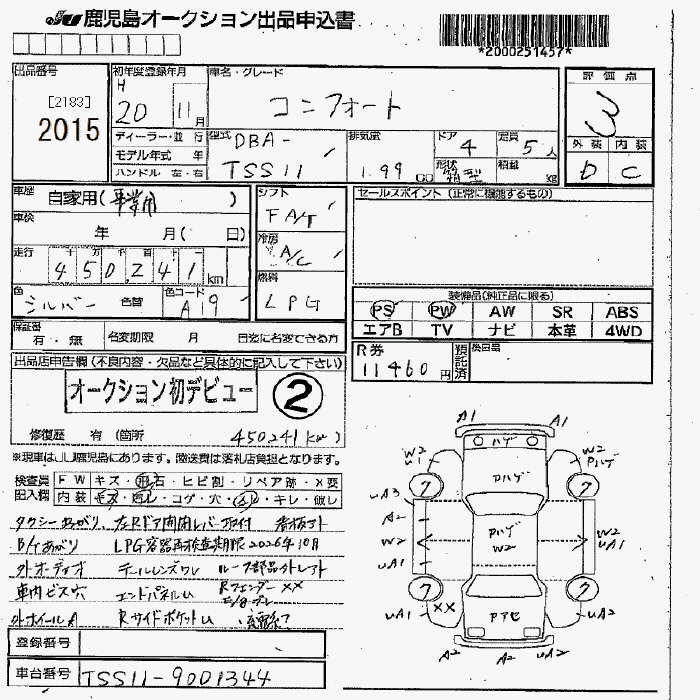 JU鹿児島オークション出品申込書
*2000251457*
出品番号 初年度登録年月 車名・グレード 評価点
[2183] H 20 11月 コンフォート 3
2015
ディーラー・並行 型式 DBA- 排気量 ドア 4 定員 5人 外装 内装
モデル年式 年 TSS11 1.99 CC 形状 箱型 積載 kg D C
ハンドル 左・右
車歴 自家用(事業用) シフト FA/T セールスポイント (正常に機能するもの)
車検 年 月( 日) 冷房 A/C
走行 十万千百十一 450,241km 燃料 LPG
色 シルバー 色替 色コード A19
装備品(純正品に限る)
PS PW AW SR ABS
エアB TV ナビ 本革 4WD
保証書 有・無 名変期限 月 日迄に名変できる方
R券 11460円 預託済
出品店申告欄 (不良内容・欠品など具体的に記入して下さい)
オークション初デビュー ②
修復歴 有 (箇所 450241km)
※現車はJU鹿児島にあります。陸送費は落札店負担となります。
検査員記入欄 FW キズ・飛石・ヒビ割・リペア跡・X要
内装 キズ・汚レ・コゲ・穴・ ・キレ・破レ
タクシー上がり 左Rドア開閉レバー取付 看板灯
LPG容器再検査期限 2026年10月
外オーディオ テールレンズワレ ルーフ部品外レアト
車内ビス穴 エンドパネルU Rフェンダー XX
外ホイールA RサイドポケットU
登録番号
車台番号 TSS11-9001344
A1 A1
ハゲ
W2 U1 W2 Pハゲ
ワ Aハゲ ワ
UA3 UA3
A2 Pハゲ W2
W2 W2 UA1
UA1
ワ ワ
UA1 XX PアセUA2
A2 A2 UA2